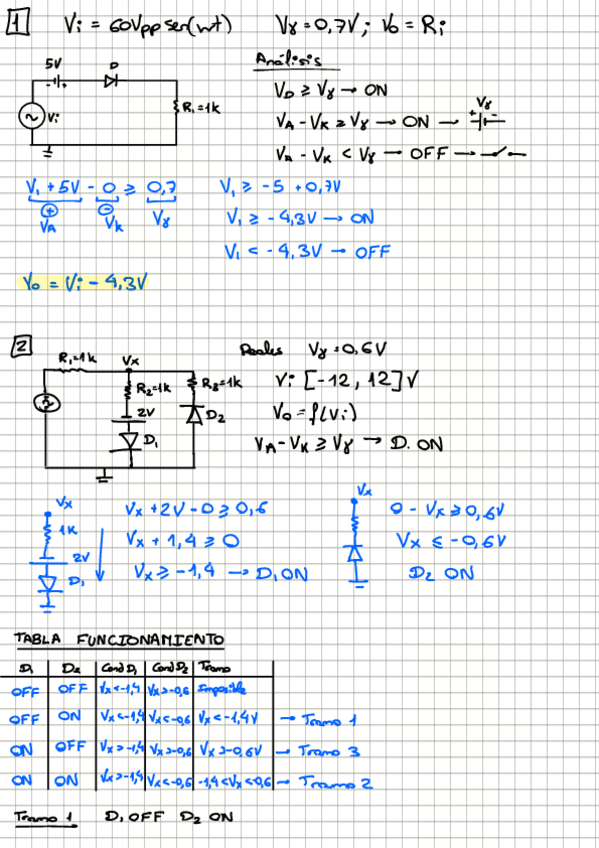 1 Vi = 60Vpp sen(wt) Vγ = 0,7V ; Vo = Ri
Análisis
5V D
R1=1k
Vi
VD ≥ Vγ → ON
VA - VK ≥ Vγ → ON → + Vγ -
VA - VK < Vγ → OFF →
V1 + 5V - 0 ≥ 0,7 V1 ≥ -5 + 0,7V
⊕ ⊖ Vγ
VA VK
V1 ≥ -4,3V → ON
V1 < -4,3V → OFF
Vo = Vi - 4,3V
2 Reales Vγ = 0,6V
R1=1k Vx
R2=1k R3=1k
2V
D1 D2
Vi [-12, 12] V
Vo = f(Vi)
VA - VK ≥ Vγ → D. ON
Vx
1K
2V
D1
Vx + 2V - 0 ≥ 0,6
Vx + 1,4 ≥ 0
Vx ≥ -1,4 → D1 ON
Vx
0 - Vx ≥ 0,6V
Vx ≤ -0,6V
D2 ON
TABLA FUNCIONAMIENTO
D1 D2 Cond D1 Cond D2 Tramo
OFF OFF Vx<-1,4 Vx>-0,6 Imposible
OFF ON Vx<-1,4 Vx<-0,6 Vx<-1,4V → Tramo 1
ON OFF Vx>-1,4 Vx>-0,6 Vx>-0,6V → Tramo 3
ON ON Vx>-1,4 Vx<-0,6 -1,4<Vx<-0,6 → Tramo 2
Tramo 1 D1 OFF D2 ON